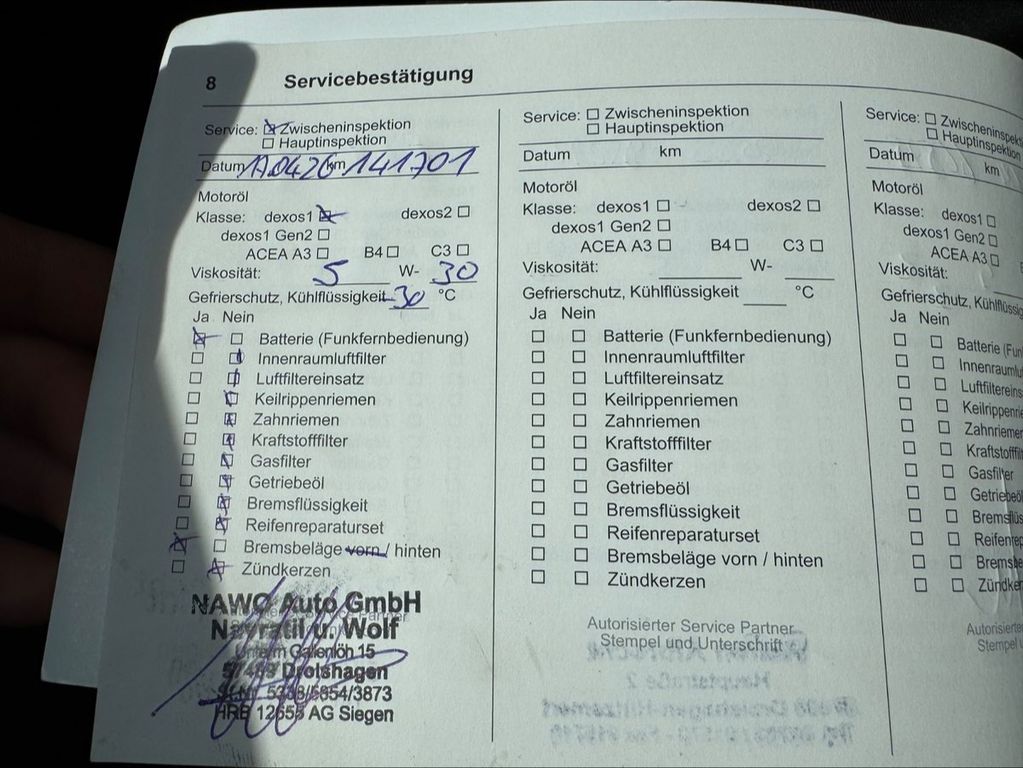 8 Servicebestätigung
Service: Zwischeninspektion
Hauptinspektion
Datum km 141701
Motoröl
Klasse: dexos1 dexos2
dexos1 Gen2
ACEA A3 B4 C3
Viskosität: 5 W- 30
Gefrierschutz, Kühlflüssigkeit -30 °C
Ja Nein
Batterie (Funkfernbedienung)
Innenraumluftfilter
Luftfiltereinsatz
Keilrippenriemen
Zahnriemen
Kraftstofffilter
Gasfilter
Getriebeöl
Bremsflüssigkeit
Reifenreparaturset
Bremsbeläge vorn / hinten
Zündkerzen
NAWO Auto GmbH
Navratil u. Wolf
Unterm Gallenlöh 15
57489 Drolshagen
/3873
HRB 12655 AG Siegen
Service: Zwischeninspektion
Hauptinspektion
Datum km
Motoröl
Klasse: dexos1 dexos2
dexos1 Gen2
ACEA A3 B4 C3
Viskosität: W-
Gefrierschutz, Kühlflüssigkeit °C
Ja Nein
Batterie (Funkfernbedienung)
Innenraumluftfilter
Luftfiltereinsatz
Keilrippenriemen
Zahnriemen
Kraftstofffilter
Gasfilter
Getriebeöl
Bremsflüssigkeit
Reifenreparaturset
Bremsbeläge vorn / hinten
Zündkerzen
Autorisierter Service Partner
Stempel und Unterschrift
Service: Zwischeninspekt
Hauptinspektion
Datum km
Motoröl
Klasse: dexos1
dexos1 Gen2
ACEA A3
Viskosität:
Gefrierschutz, Kühlflüssig
Ja Nein
Batterie (Fun
Innenraumlu
Luftfiltereins
Keilrippenrie
Zahnriemen
Kraftstofffilt
Gasfilter
Getriebeöl
Bremsflüs
Reifenrep
Bremsbe
Zündker
Autorisierte
Stempel u